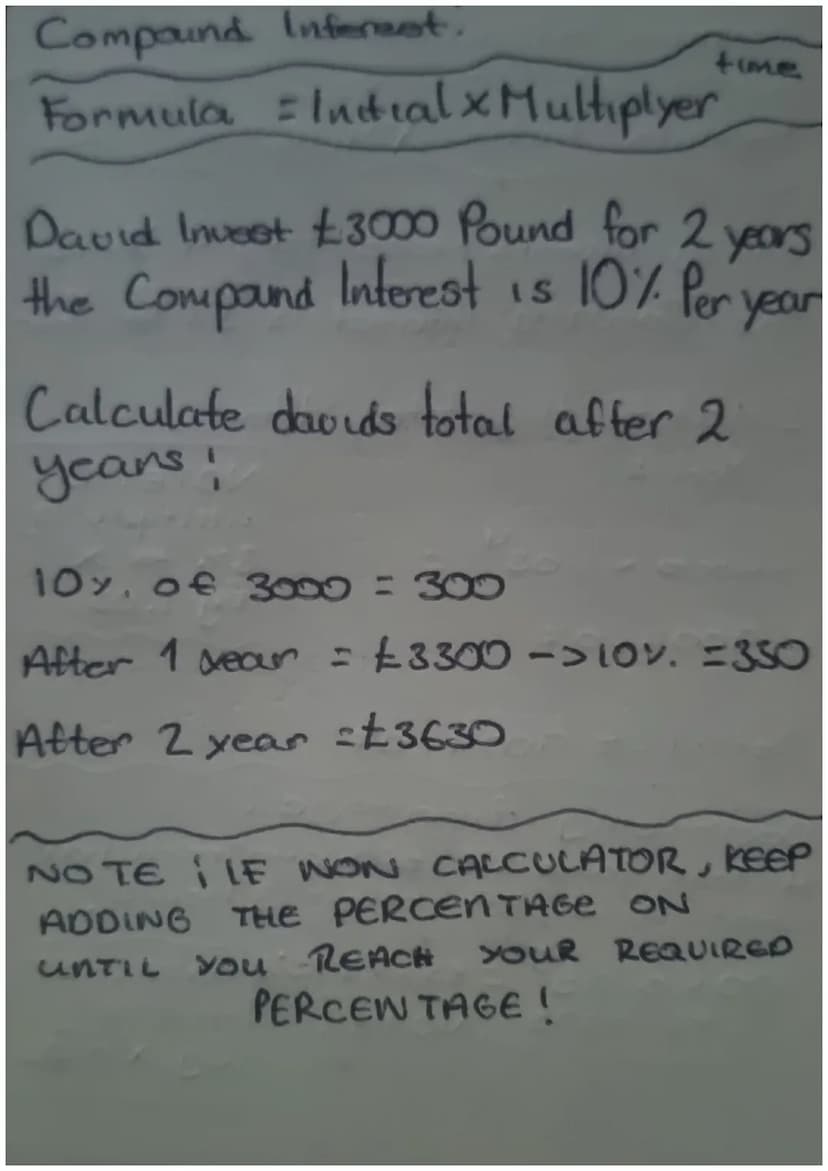 Compound Interest.
time
Formula = Initial x Multiplyer
David Invest £3000 Pound for 2 years
the Compound Interest is 10% Per year
Calculate davids total after 2
years!
10%. of 3000 = 300
After 1 year = £3300 -> 10%. = 330
After 2 year = £3630
NOTE ¡ IF NON CALCULATOR, KEEP
ADDING THE PERCENTAGE ON
UNTIL YOU REACH YOUR REQUIRED
PERCENTAGE!